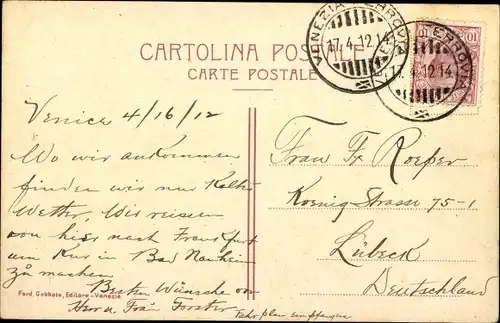 CARTOLINA POSTALE
CARTE POSTALE
VENEZIA FERROVIA
17.4.12 14
VENEZIA FERROVIA
17.4.12 14
10 10
Venice 4/16/12
Wo wir ankommen
finden wir nur Kaltes
Wetter. Wir reisen
von hier nach Frankfurt
um Kur in Bad Nauheim
zu machen
Besten Wünsche von
Herr u. Frau Forster
Fahrplan empfangen
Frau Fr Roeper
Koenig Strasse 75-1
Lübeck
Deutschland
Ferd. Gobbato, Editore-Venezia